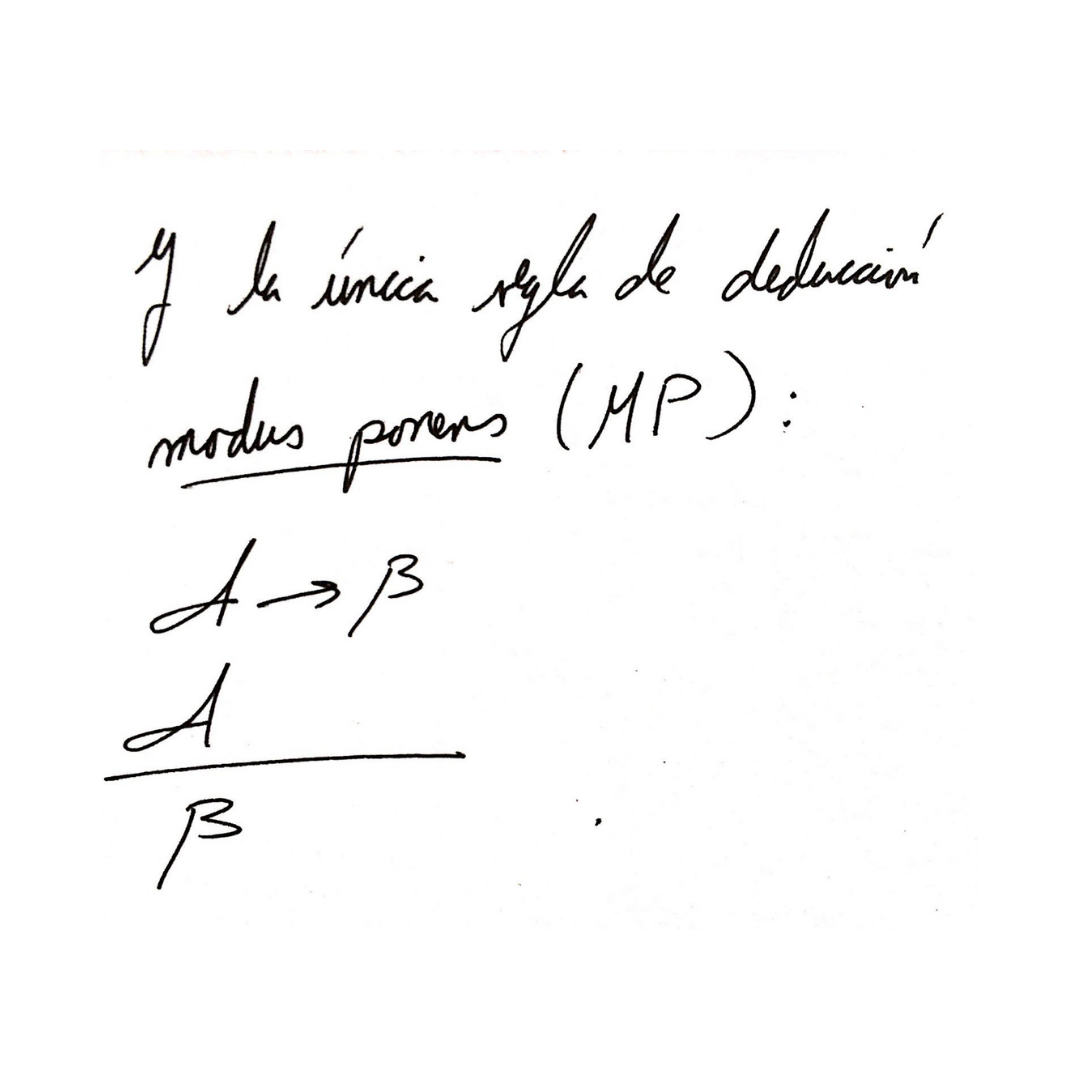 Y la única regla de deducción
modus ponens (MP):
A → B
A
B